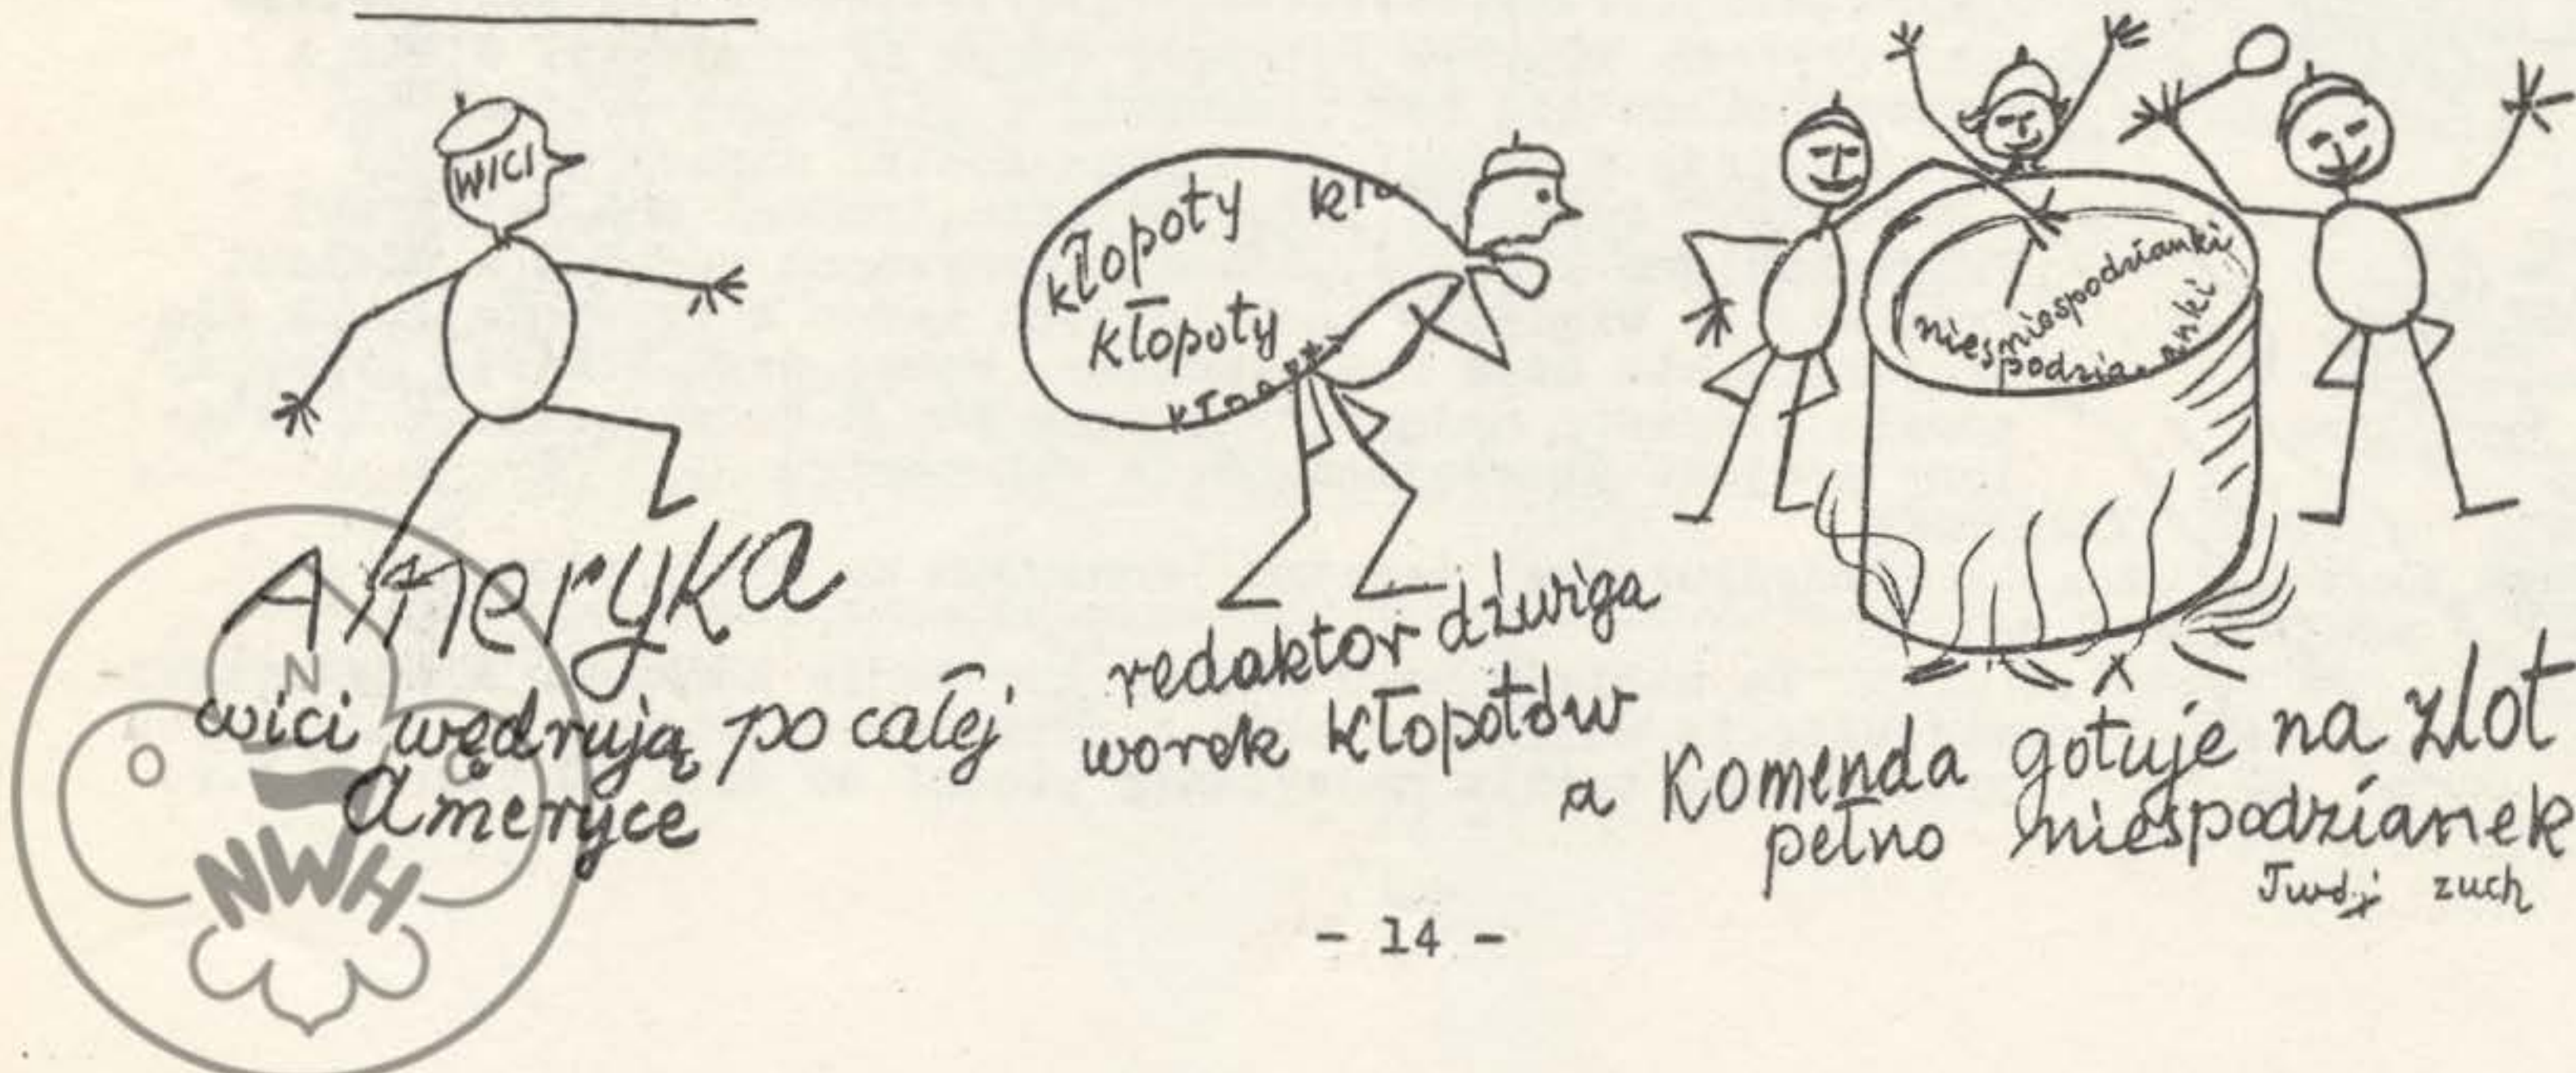 WICI
Ameryka
wici wędrują po całej
Ameryce
kłopoty kło
kłopoty
kłopo
redaktor dźwiga
worek kłopotów
niespodzianki
niespodzianki
a Komenda gotuje na zlot
pełno niespodzianek
Twój zuch
- 14 -
N
NWH